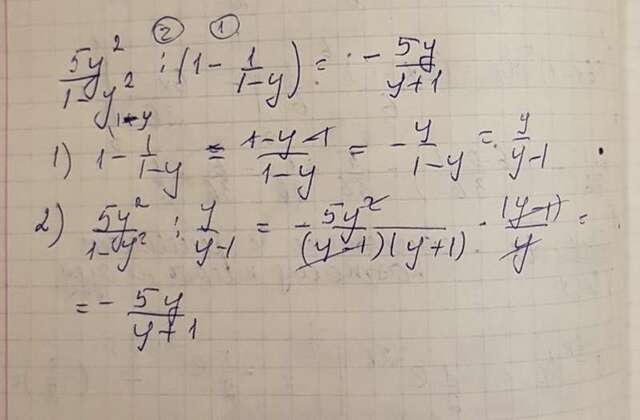 ② ①
5y²/(1-y²) : (1 - 1/(1-y)) = - 5y/(y+1)
1) 1 - 1/(1-y) = (1-y-1)/(1-y) = - y/(1-y) = y/(y-1)
2) 5y²/(1-y²) : y/(y-1) = - 5y²/((y-1)(y+1)) · (y-1)/y =
= - 5y/(y+1)